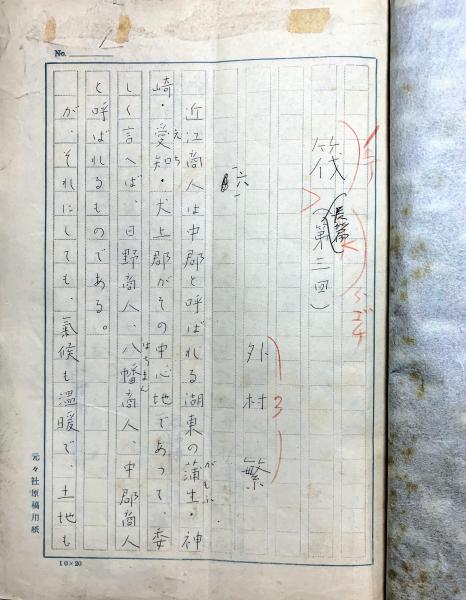 No.
筏(長篇
第三回)
外村繁
六
近江商人は中郡と呼ばれる湖東の蒲生・神
がもふ
崎・愛知・犬上郡がその中心地であつて、委
えち
しく言へば、日野商人、八幡商人、中郡商人
はちまん
と呼ばれるものである。
が、それにしても、氣候も温暖で、土地も
元々社原稿用紙
10×20